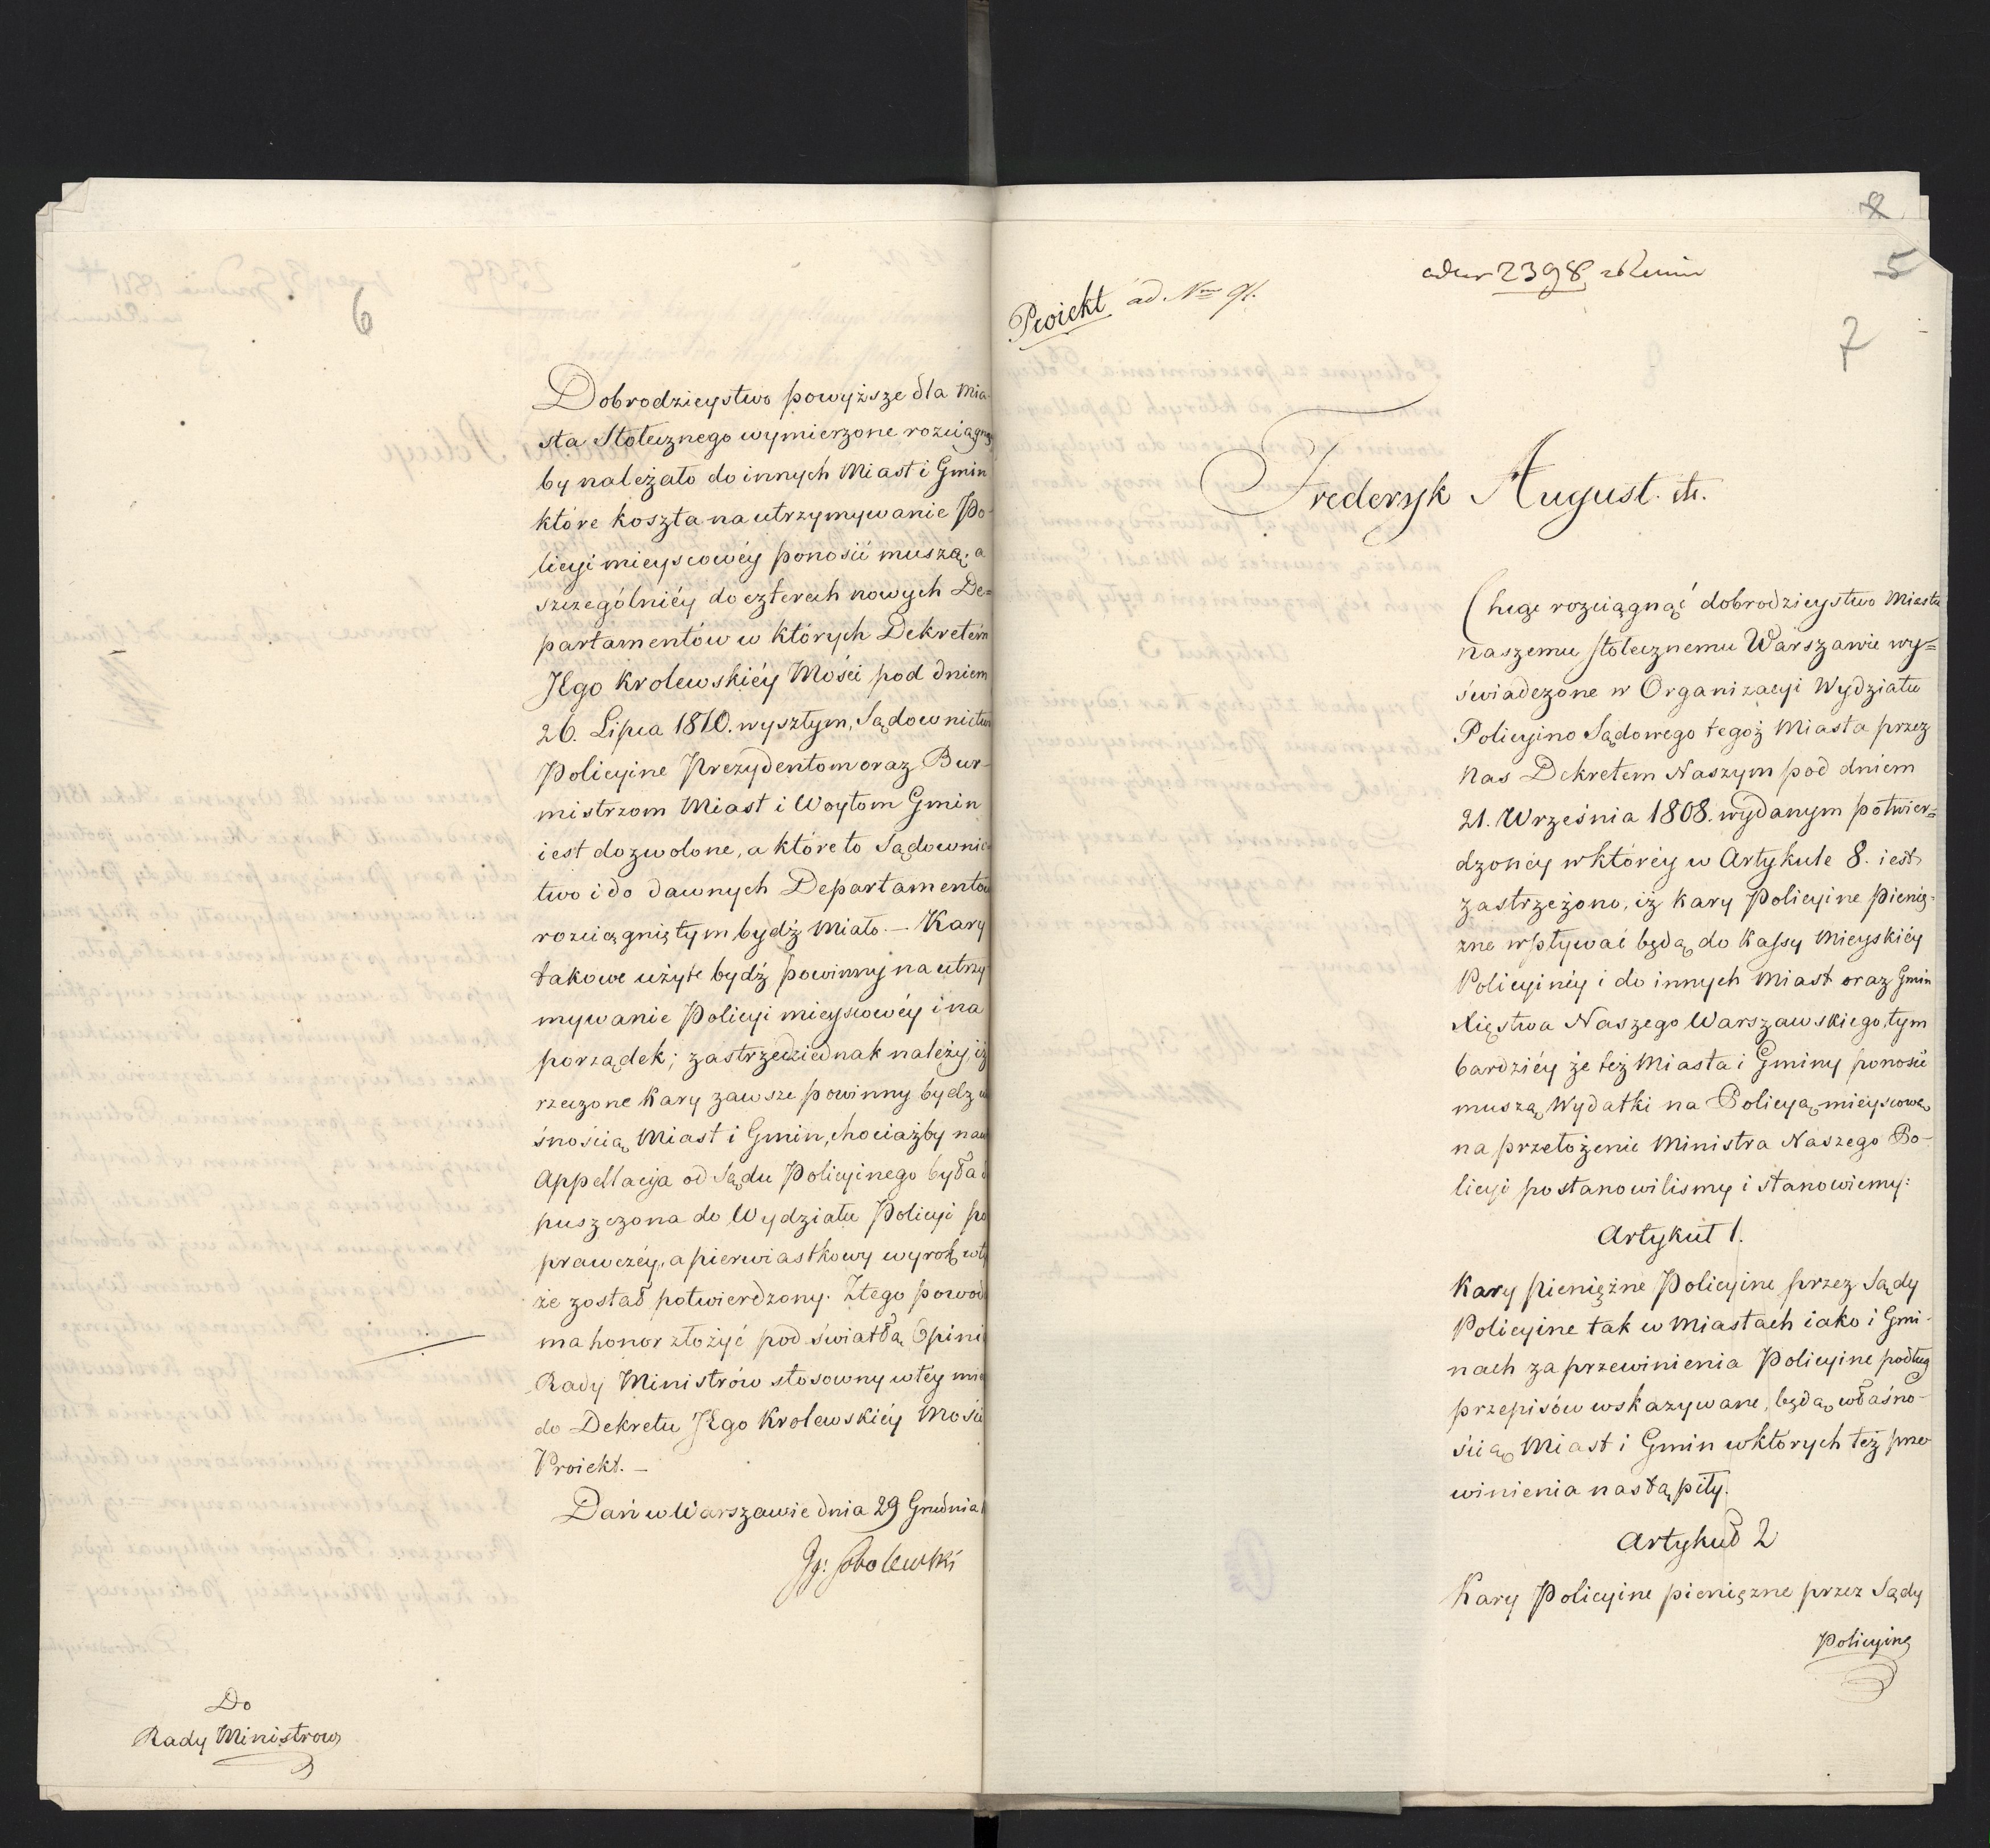 6
Dobrodzieystwo powyższe dla Mia-
sta Stołecznego wymierzone rozciągnąć
by należało do innych Miast i Gmin
które koszta na utrzymywanie Po-
licyi mieyscowéy ponosić muszą, a
szczególniéy do czterech nowych De=
partamentów w których Dekretem
JKgo Krolewskiéy Mości pod dniem
26. Lipca 1810. wyszłym, Sądownictwo
Policyine Prezydentom oraz Bur-
mistrzom Miast i Woytom Gmin
iest dozwolone, a które to Sądownic
two i do dawnych Departamentów
rozciągniętym bydź miało. — Kary
takowe użyte bydź powinny na utrzy
mywanie Policyi mieyscowéy i na
porządek; zastrzedz iednak należy, iż
rzeczone Kary zawsze powinny bydz
śnością Miast i Gmin, chociażby na
Appellacyja od Sądu Policyinego była
puszczona do Wydziału Policyi po
prawczéy, a pierwiastkowy wyrok
że został potwierdzony. Ztego powodu
ma honor złożyć pod światłą Opini
Rady Ministrów stosowny wtéy mie
do Dekretu JKgo Krolewskiéy Mości
Proiekt. —
Dań w Warszawie dnia 29 Grudnia
Jg: Sobolewski
Do
Rady Ministrow
8
5
7
Proiekt ad Nrum 91.
2398
Frederyk August. etc.
Chcąc rozciągnąć dobrodzieystwo Miastu
naszemu Stołecznemu Warszawie wy=
świadczone w Organizacyi Wydziału
Policyino Sądowego tegoż Miasta przez
Nas Dekretem Naszym pod dniem
21. Września 1808. wydanym potwier=
dzonéy w któréy w Artykule 8. iest
zastrzeżono, iż kary Policyine Pienię-
żne wpływać będą do Kassy Mieyskiéy
Policyinéy i do innych Miast oraz Gmin
Xięstwa Naszego Warszawskiego, tym
bardziéy że też Miasta i Gminy ponosić
muszą Wydatki na Policyą mieyscową
na przełożenie Ministra Naszego Po-
licyi postanowilismy i stanowiemy:
Artykuł 1.
Kary Pieniężne Policyine przez Sądy
Policyine tak w Miastach iako i Gmi-
nach za przewinienia Policyine podług
przepisów wskazywane, będą własno-
ścią Miast i Gmin wktórych też prze
winienia nastąpiły.
Artykuł 2
Kary Policyine pieniężne przez Sądy
Policyine